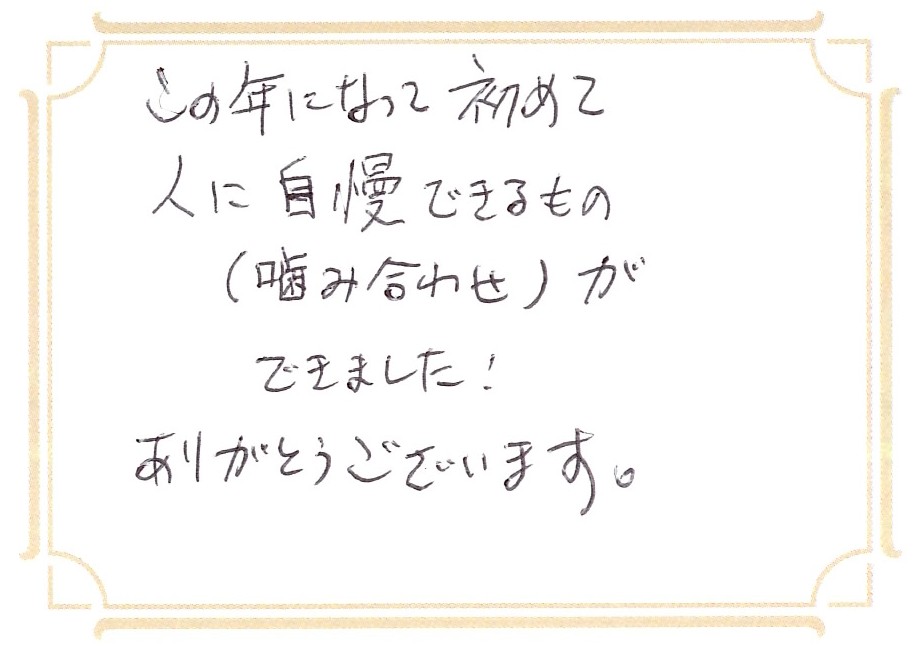 この年になって初めて
人に自慢できるもの
（噛み合わせ）が
できました！
ありがとうございます。